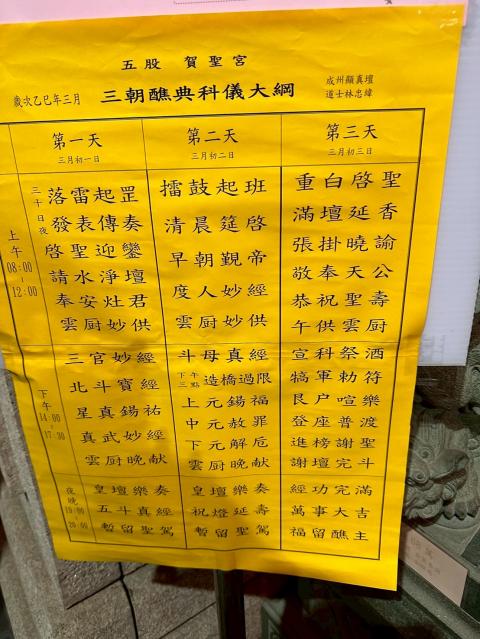 五股 賀聖宮
歲次乙巳年三月
三朝醮典科儀大綱
成州顯真壇
道士林忠緯
第一天
三月初一日
第二天
三月初二日
第三天
三月初三日
上午
08:00
-
12:00
三十日夜
落雷起罡
發表傳奏
啓聖迎鑾
請水淨壇
奉安灶君
雲厨妙供
擂鼓起班
清晨筵啓
早朝覲帝
度人妙經
雲厨妙供
重白啓聖
滿壇延香
張掛曉諭
敬奉天公
恭祝聖壽
午供雲厨
下午
14:00
-
17:30
三官妙經
北斗寶經
星真錫祐
真武妙經
雲厨晚献
斗母真經
下午三點 造橋過限
上元錫福
中元赦罪
下元解厄
雲厨晚献
宣科祭酒
犒軍勅符
艮户喧樂
登座普渡
進榜謝聖
謝壇完斗
夜晚
19:00
-
20:00
皇壇樂奏
五斗真經
暫留聖駕
皇壇樂奏
祝燈延壽
暫留聖駕
經功完滿
萬事大吉
福留醮主